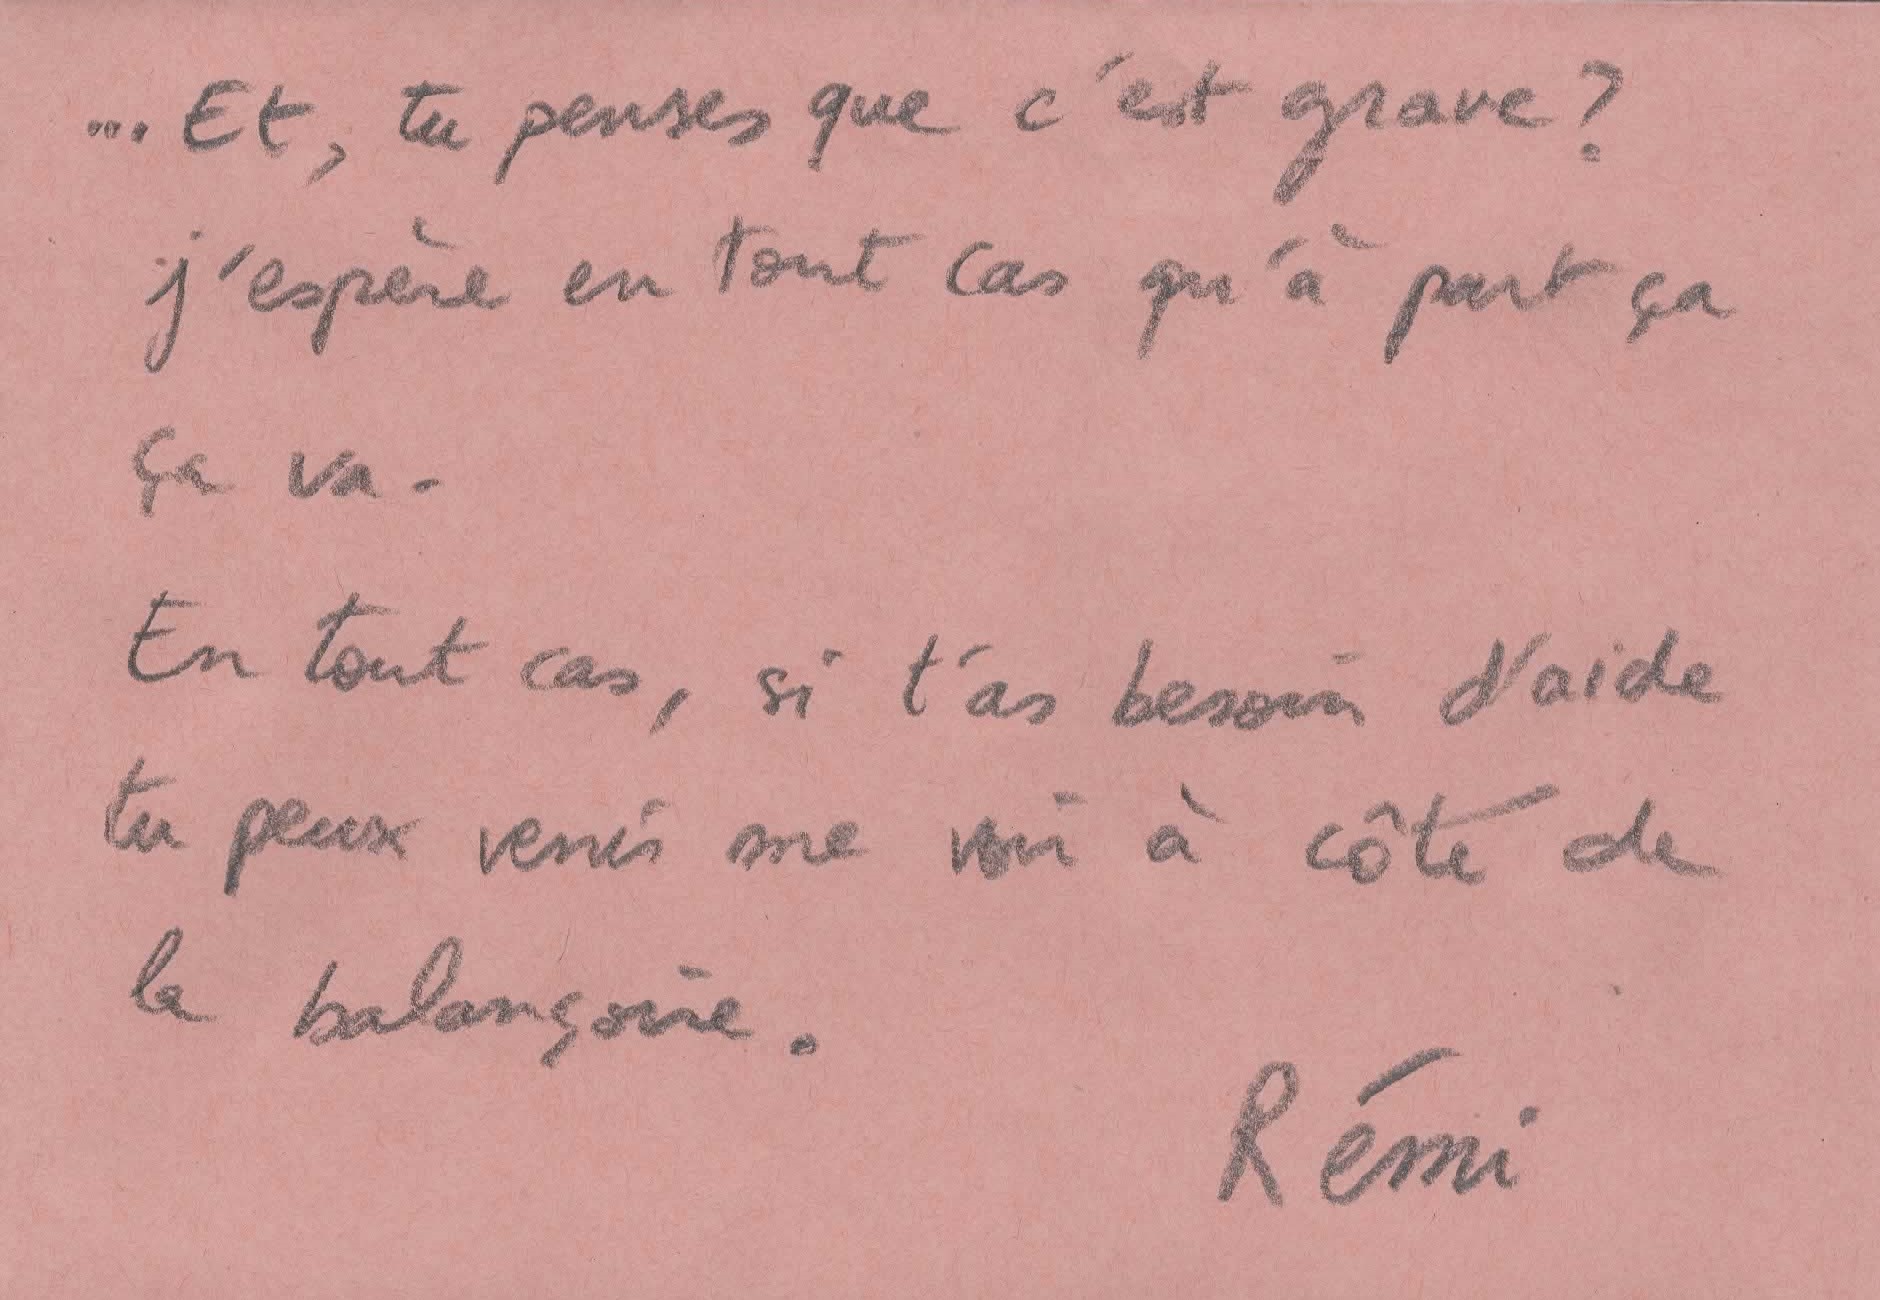 ... Et, tu penses que c'est grave?
j'espère en tout cas qu'à part ça
ça va.
En tout cas, si t'as besoin d'aide
tu peux venir me voir à côté de
la balançoire.
Rémi